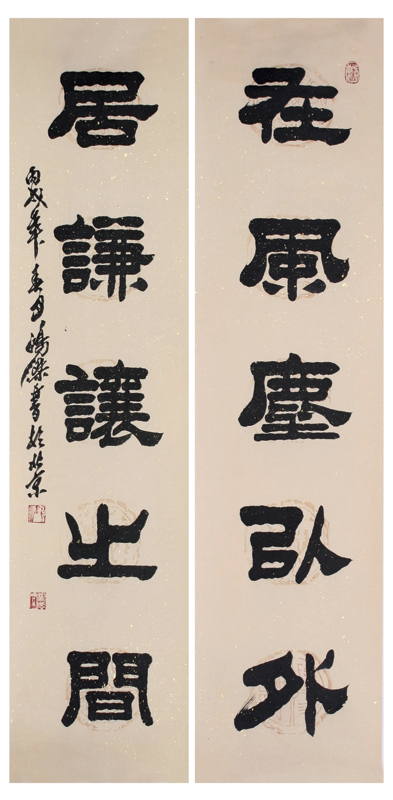 在風塵以外
居謙讓之間
丙戌年春月鴻傑書於北京